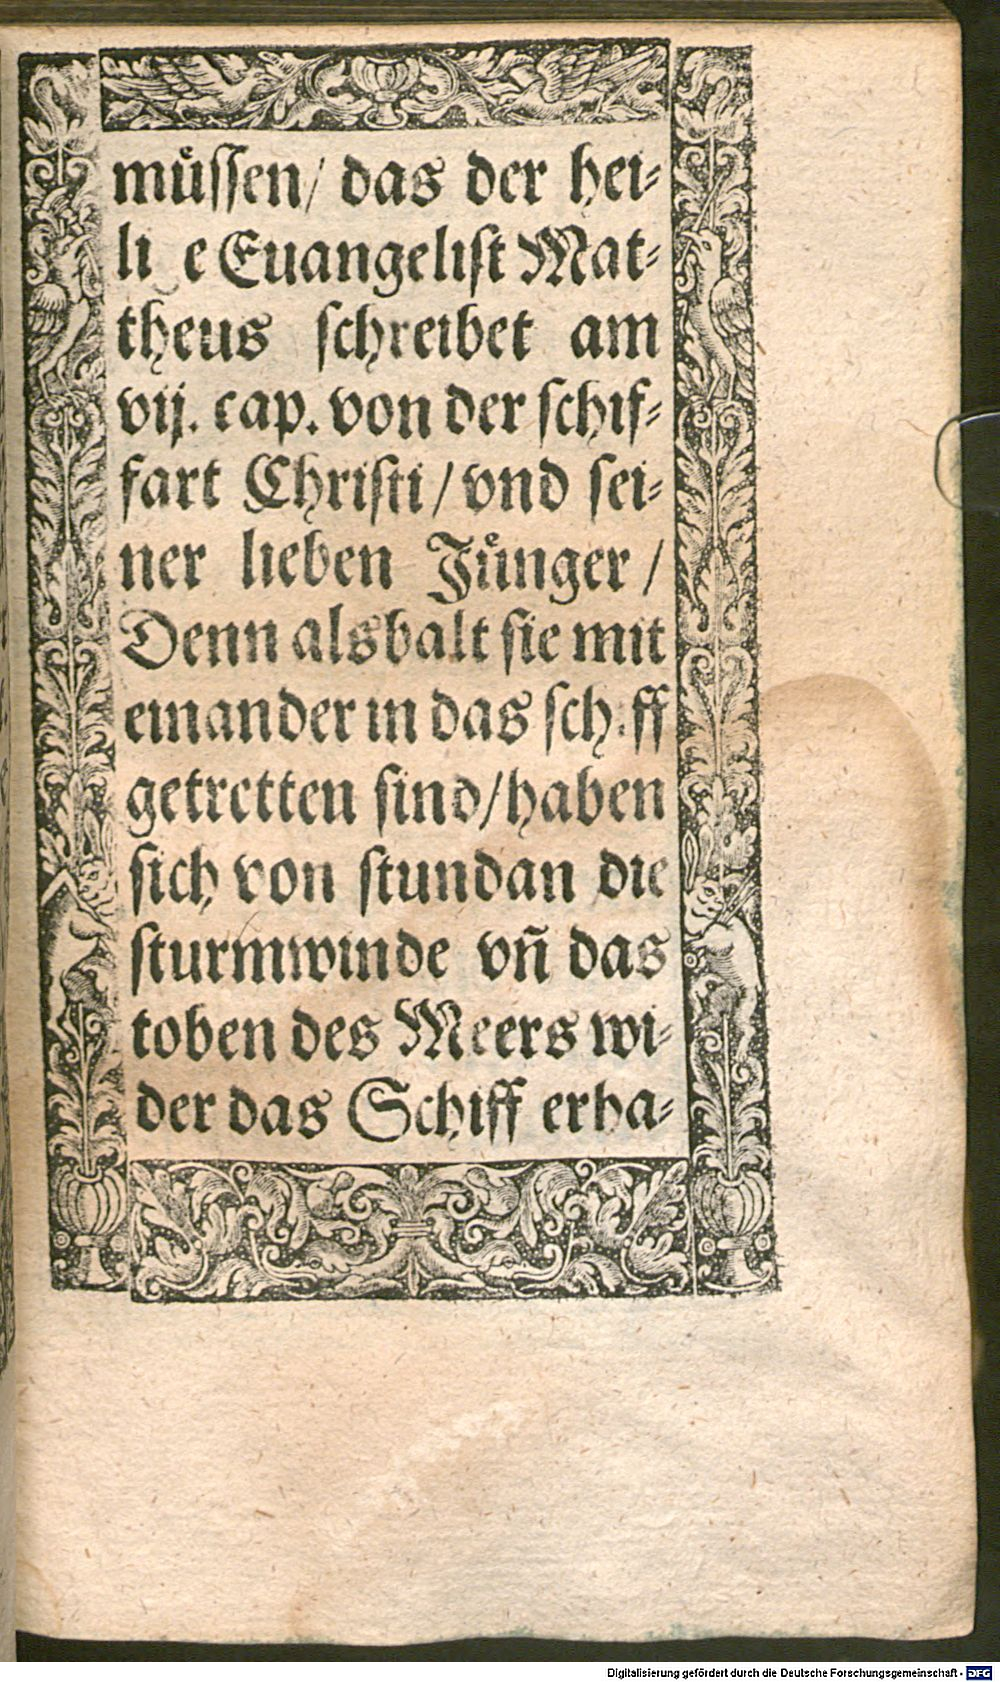 muͤſſen/ das der hei⸗
li e Euangeliſt Mat⸗
theus ſchreibet am
vij. cap. von der ſchif⸗
fart Chriſti/ vnd ſei⸗
ner lieben Juͤnger/
Denn alsbalt ſie mit
einander in das ſchiff
getretten ſind/ haben
ſich von ſtundan die
ſturmwinde vñ das
toben des Meers wi⸗
der das Schiff erha⸗
Digitalisierung gefördert durch die Deutsche Forschungsgemeinschaft - DFG